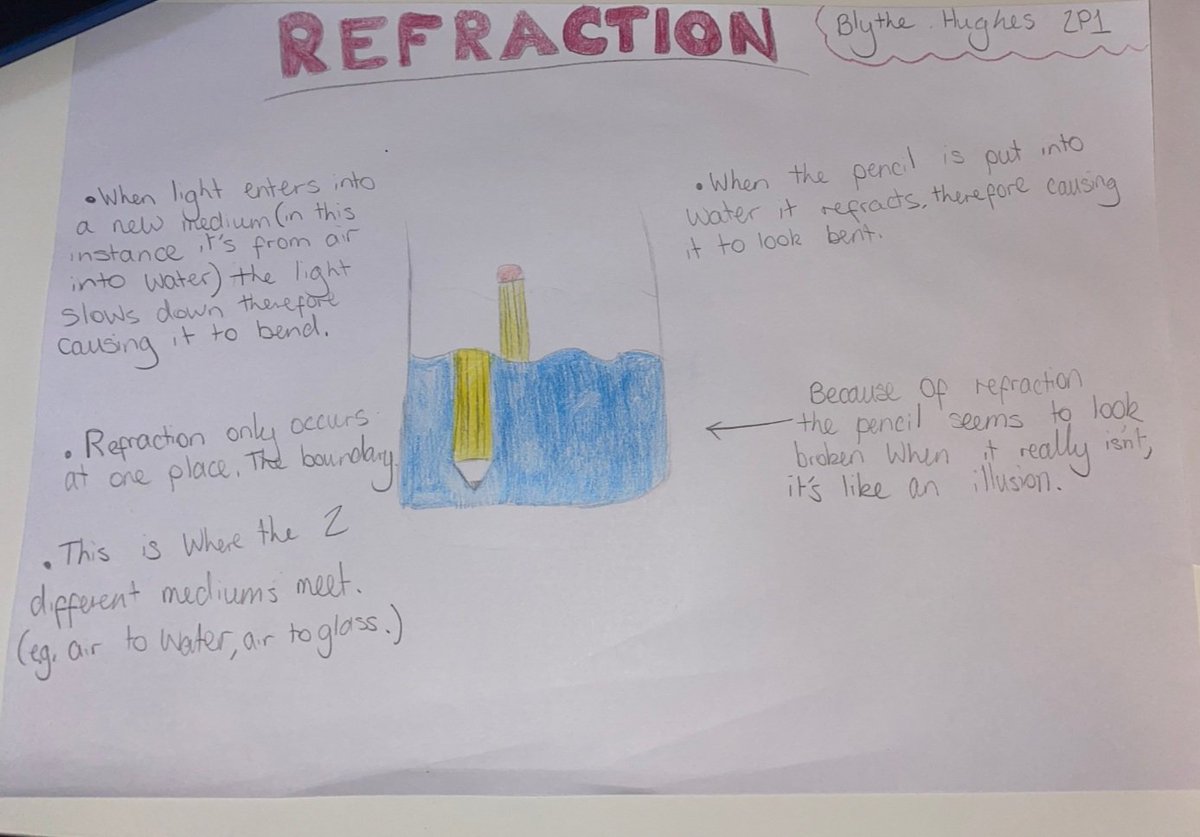 REFRACTION
Blythe. Hughes 2P1
•When light enters into
a new medium (in this
instance it's from air
into water) the light
slows down therefore
causing it to bend.
• Refraction only occurs
at one place. The boundary.
• This is Where the 2
different mediums meet.
(eg. air to water, air to glass.)
•When the pencil is put into
water it refracts, therefore causing
it to look bent.
Because of refraction
the pencil seems to look
broken When it really isn't,
it's like an illusion.